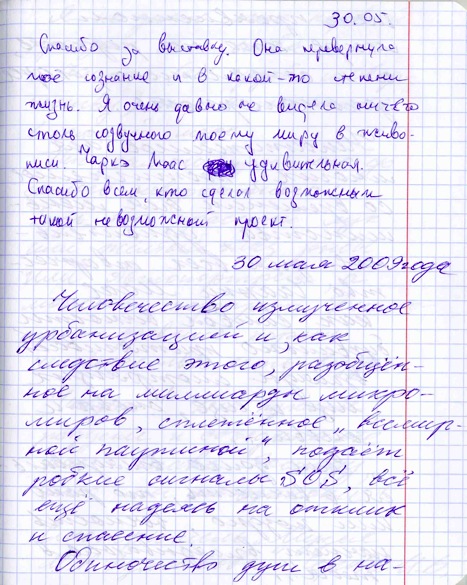 30.05.
Спасибо за выставку. Она перевернула
моё сознание и в какой-то степени
жизнь. Я очень давно не видела ничего
столь созвучного моему миру в живо-
писи. Чаркэ Моас удивительная.
Спасибо всем, кто сделал возможным
такой невозможный проект.
30 мая 2009 года
Человечество измученное
урбанизацией и, как
следствие этого, разобщён-
ное на миллиарды микро-
миров, сплетённое „всемир-
ной паутиной“, подаёт
робкие сигналы SOS, всё
ещё надеясь на отклик
и спасение.
Одиночество души в на-